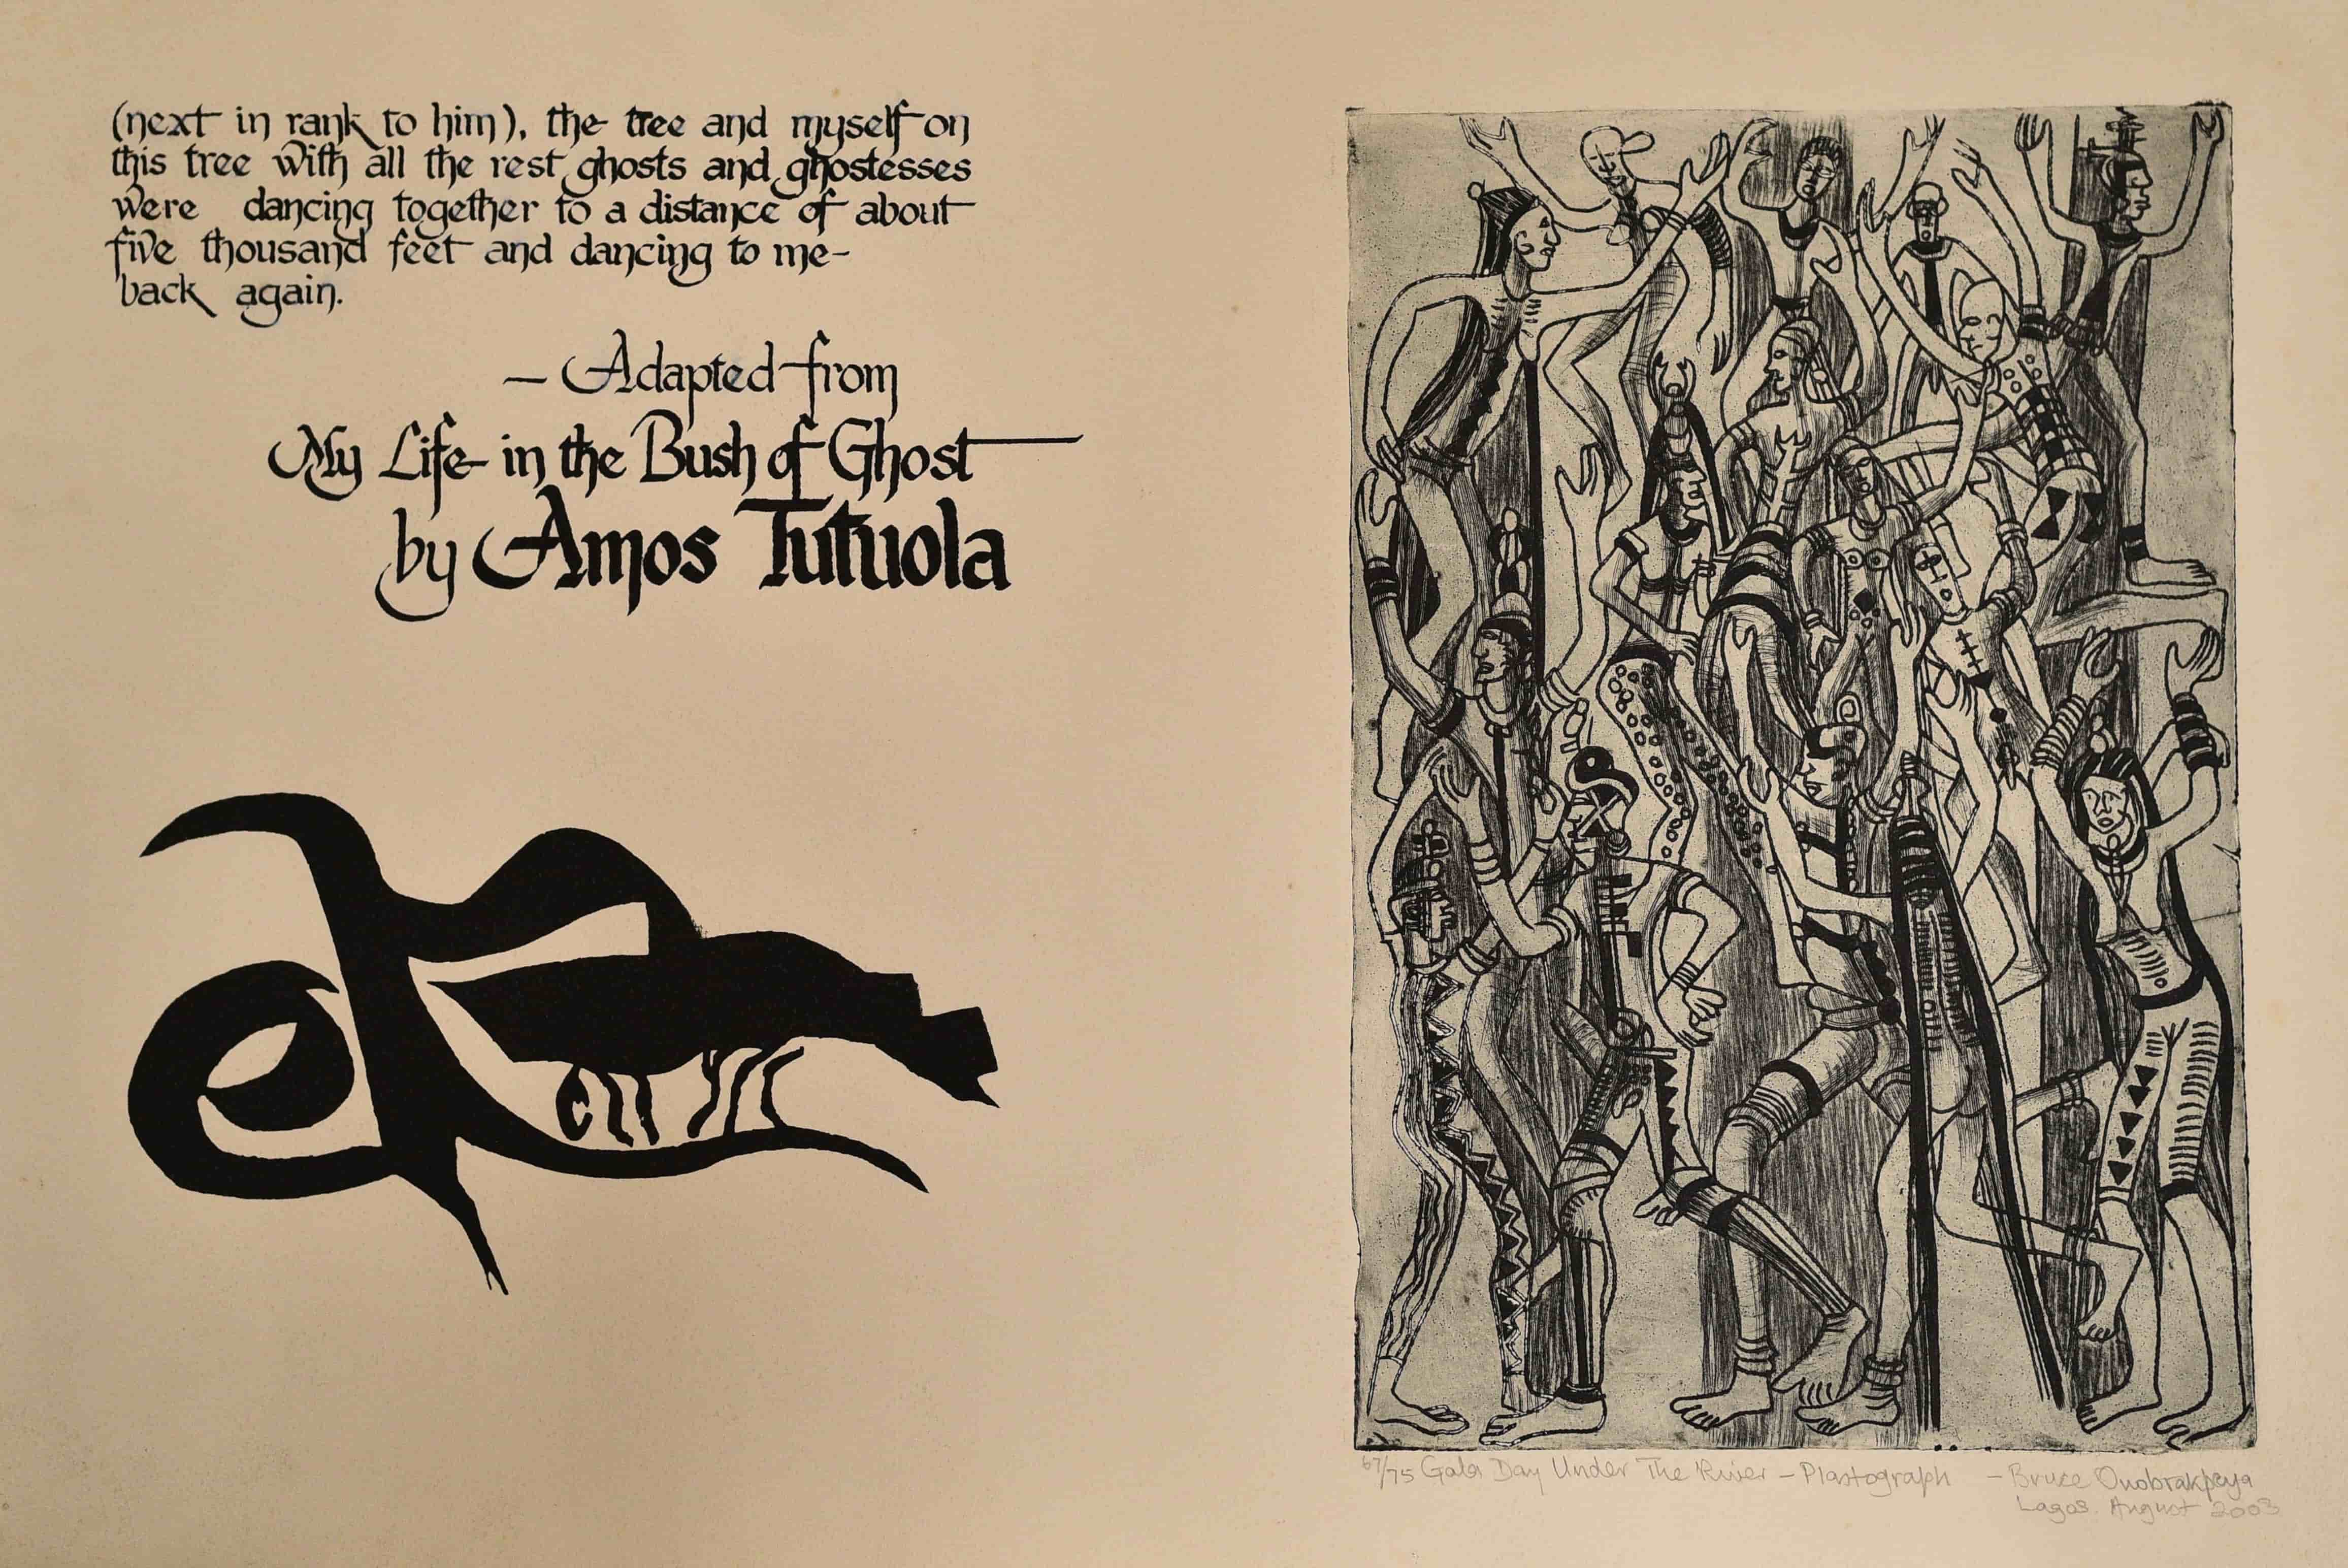 (next in rank to him), the tree and myself on
this tree with all the rest ghosts and ghostesses
were dancing together to a distance of about
five thousand feet and dancing to me-
back again.
— Adapted from
My Life in the Bush of Ghost
by Amos Tutuola
67/75 Gala Day Under The River – Plastograph – Bruce Onobrakpeya
Lagos. August 2003